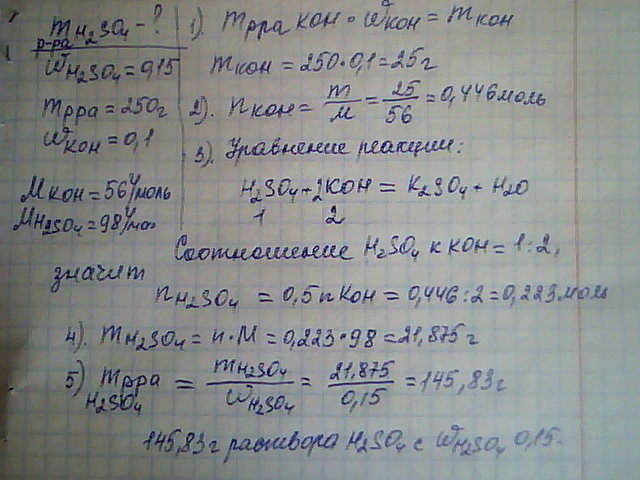 m H₂SO₄ - ?
р-ра
W H₂SO₄ = 0,15
m рра = 250г
W КОН = 0,1
М КОН = 56 г/моль
М H₂SO₄ = 98 г/моль
1). m рра КОН · W КОН = m КОН
m КОН = 250·0,1 = 25г
2). n КОН = m/М = 25/56 = 0,446 моль
3). Уравнение реакции:
H₂SO₄ + 2КОН = K₂SO₄ + H₂O
1 2
Соотношение H₂SO₄ к КОН = 1:2,
значит
n H₂SO₄ = 0,5 n КОН = 0,446 : 2 = 0,223 моль
4). m H₂SO₄ = n·М = 0,223·98 = 21,875 г
5) m рра H₂SO₄ = m H₂SO₄ / W H₂SO₄ = 21,875/0,15 = 145,83г
145,83г раствора H₂SO₄ с W H₂SO₄ 0,15.